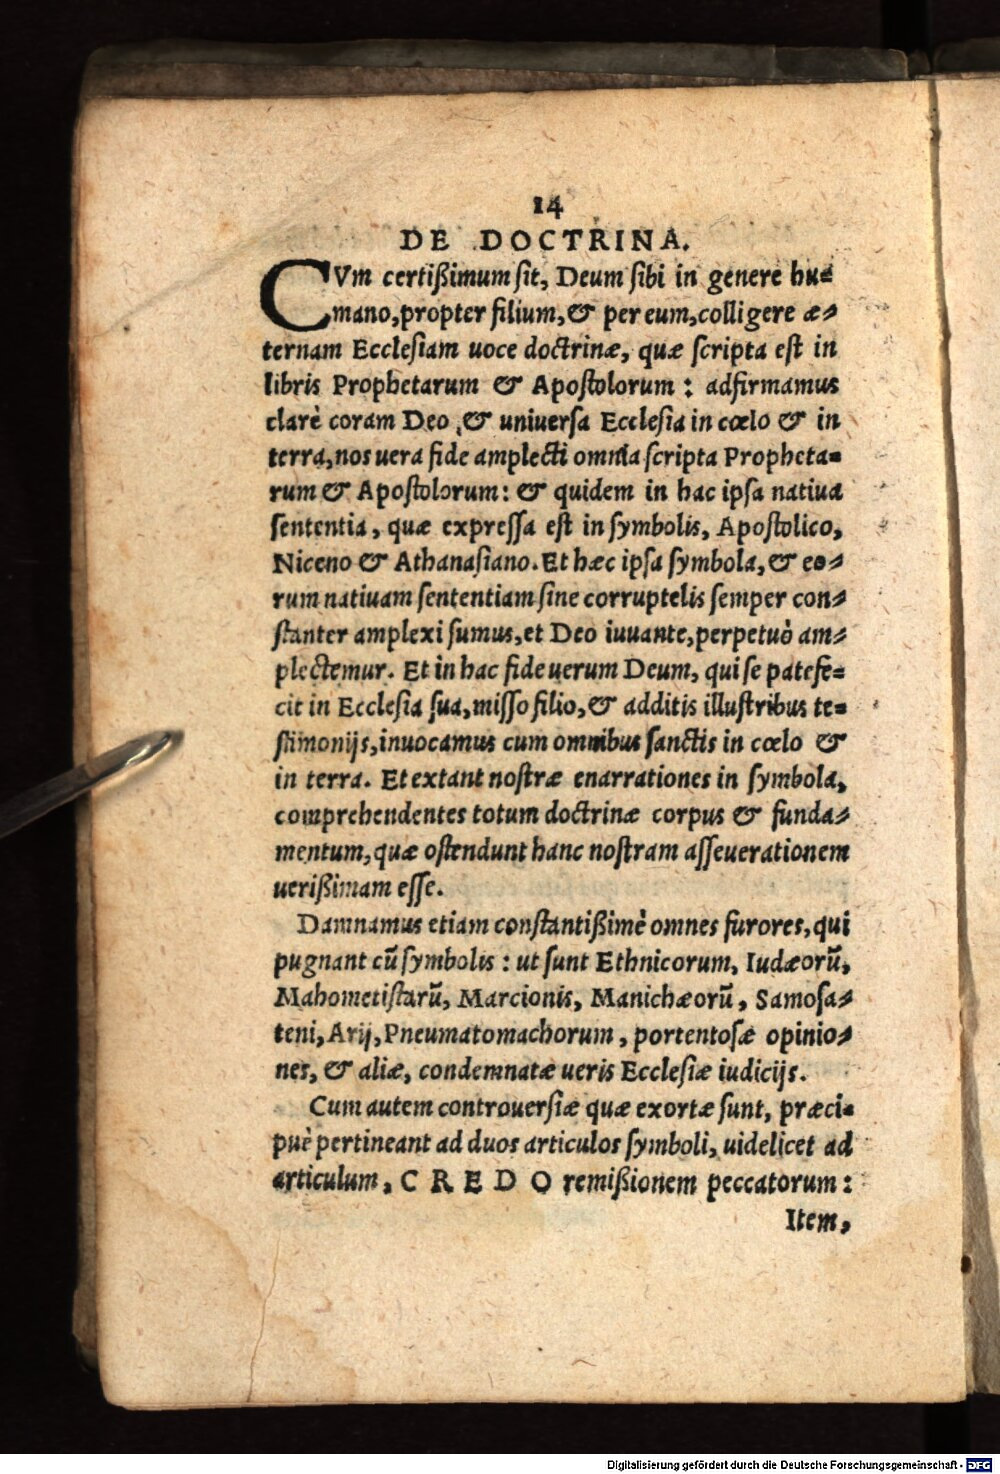 14
DE DOCTRINA.
CVm certißimum ſit, Deum ſibi in genere hu-
mano, propter filium, & per eum, colligere æ-
ternam Eccleſiam uoce doctrinæ, quæ ſcripta eſt in
libris Prophetarum & Apoſtolorum: adfirmamus
clarè coram Deo, & uniuerſa Eccleſia in cœlo & in
terra, nos uera fide amplecti omnia ſcripta Propheta-
rum & Apoſtolorum: & quidem in hac ipſa natiua
ſententia, quæ expreſſa eſt in ſymbolis, Apoſtolico,
Niceno & Athanaſiano. Et hæc ipſa ſymbola, & eo-
rum natiuam ſententiam ſine corruptelis ſemper con-
ſtanter amplexi ſumus, et Deo iuuante, perpetuò am-
plectemur. Et in hac fide uerum Deum, qui ſe patefe-
cit in Eccleſia ſua, miſſo filio, & additis illuſtribus te-
ſtimonijs, inuocamus cum omnibus ſanctis in cœlo &
in terra. Et extant noſtræ enarrationes in ſymbola,
comprehendentes totum doctrinæ corpus & funda-
mentum, quæ oſtendunt hanc noſtram aſſeuerationem
uerißimam eſſe.
Damnamus etiam conſtantißimè omnes furores, qui
pugnant cū ſymbolis: ut ſunt Ethnicorum, Iudæorū,
Mahometiſtarū, Marcionis, Manichæorū, Samoſa-
teni, Arij, Pneumatomachorum, portentoſæ opinio-
nes, & aliæ, condemnatæ ueris Eccleſiæ iudicijs.
Cum autem controuerſiæ quæ exortæ ſunt, præci-
puè pertineant ad duos articulos ſymboli, uidelicet ad
articulum, CREDO remißionem peccatorum:
Item,
Digitalisierung gefördert durch die Deutsche Forschungsgemeinschaft - DFG